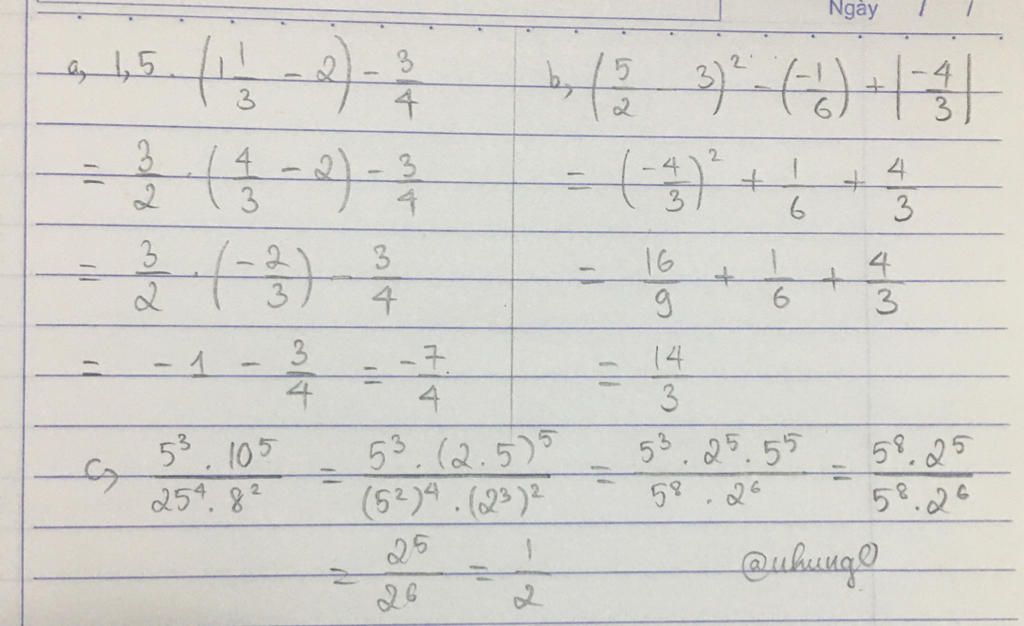 Ngày / /
a, 1,5 . (1 1/3 - 2) - 3/4
= 3/2 . (4/3 - 2) - 3/4
= 3/2 . (-2/3) - 3/4
= -1 - 3/4 = -7/4
b, (5/2 - 3)² - (-1/6) + |-4/3|
= (-4/3)² + 1/6 + 4/3
= 16/9 + 1/6 + 4/3
= 14/3
c, 5³ . 10⁵ / 25⁴ . 8² = 5³ . (2 . 5)⁵ / (5²)⁴ . (2³)² = 5³ . 2⁵ . 5⁵ / 5⁸ . 2⁶ = 5⁸ . 2⁵ / 5⁸ . 2⁶
= 2⁵ / 2⁶ = 1/2